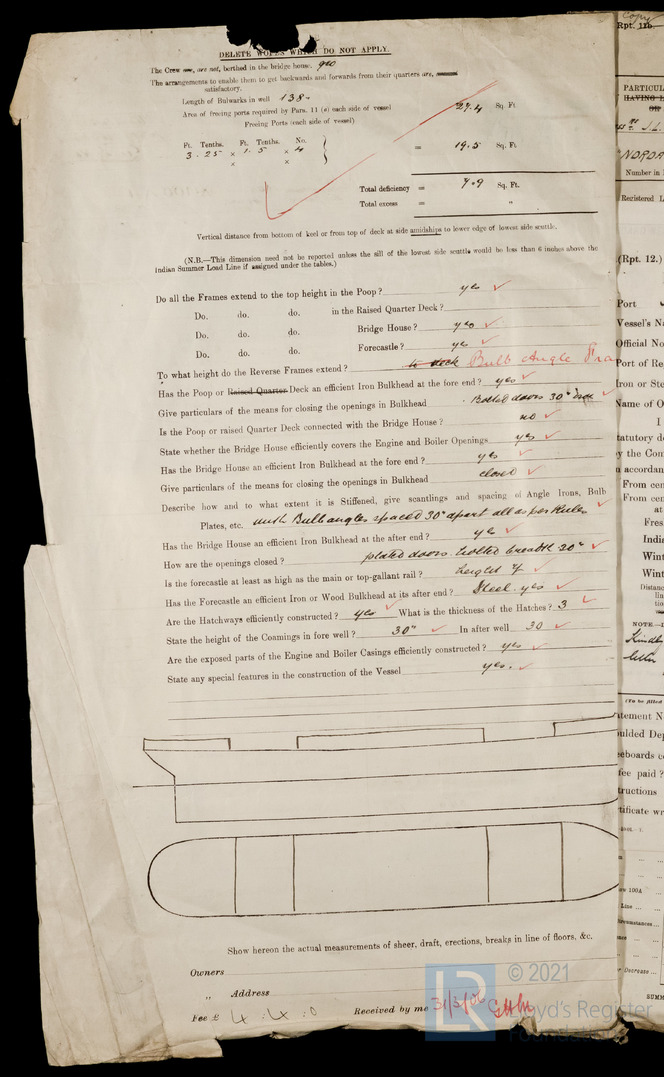 DELETE WORDS WHICH DO NOT APPLY.
The Crew are, are not, berthed in the bridge house. yes
The arrangements to enable them to get backwards and forwards from their quarters are,
satisfactory.
Length of Bulwarks in well 138
Area of freeing ports required by Para. 11 (a) each side of vessel 27.4 Sq. Ft
Freeing Ports (each side of vessel)
Ft. Tenths. Ft. Tenths. No.
3.25 × 1.5 × 4 = 19.5 Sq. Ft
× ×
Total deficiency = 7.9 Sq. Ft.
Total excess = "
Vertical distance from bottom of keel or from top of deck at side amidships to lower edge of lowest side scuttle.
(N.B.—This dimension need not be reported unless the sill of the lowest side scuttle would be less than 6 inches above the
Indian Summer Load Line if assigned under the tables.)
Do all the Frames extend to the top height in the Poop? yes
Do. do. do. in the Raised Quarter Deck?
Do. do. do. Bridge House? yes
Do. do. do. Forecastle? yes
To what height do the Reverse Frames extend? to deck Bulb Angle Fra
Has the Poop or Raised Quarter Deck an efficient Iron Bulkhead at the fore end? yes
Give particulars of the means for closing the openings in Bulkhead Bolted doors 30"
Is the Poop or raised Quarter Deck connected with the Bridge House? no
State whether the Bridge House efficiently covers the Engine and Boiler Openings yes
Has the Bridge House an efficient Iron Bulkhead at the fore end? yes
Give particulars of the means for closing the openings in Bulkhead closed
Describe how and to what extent it is Stiffened, give scantlings and spacing of Angle Irons, Bulb
Plates, etc. with Bulb angles spaced 30" apart all as per Rules
Has the Bridge House an efficient Iron Bulkhead at the after end? yes
How are the openings closed? plated doors bolted breadth 30"
Is the forecastle at least as high as the main or top-gallant rail? height
Has the Forecastle an efficient Iron or Wood Bulkhead at its after end? Steel. yes
Are the Hatchways efficiently constructed? yes What is the thickness of the Hatches? 3
State the height of the Coamings in fore well? 30" In after well 30
Are the exposed parts of the Engine and Boiler Casings efficiently constructed? yes
State any special features in the construction of the Vessel yes.
Show hereon the actual measurements of sheer, draft, erections, breaks in line of floors, &c.
Owners
" Address
Fee £ 4.4.0 Received by me 31/3/06
© 2021
Lloyd's Register
Foundation
Copy
Rpt. 11b.
PARTICUL
HAVING L
OR
NORDA
Number in
Registered L
(Rpt. 12.)
Port
Vessel's Na
Official No
Port of Re
Iron or Ste
Name of O
I
tatutory d
y the Com
n accordan
From cen
From cen
at
Fres
India
Wint
Wint
Distanc
NOTE.—
Kindly
letter
(To be filled
tatement N
oulded Dep
eeboards c
fee paid?
tructions
rtificate wr
100A
Line ...
ircumstances
r Decrease ...
SUMM